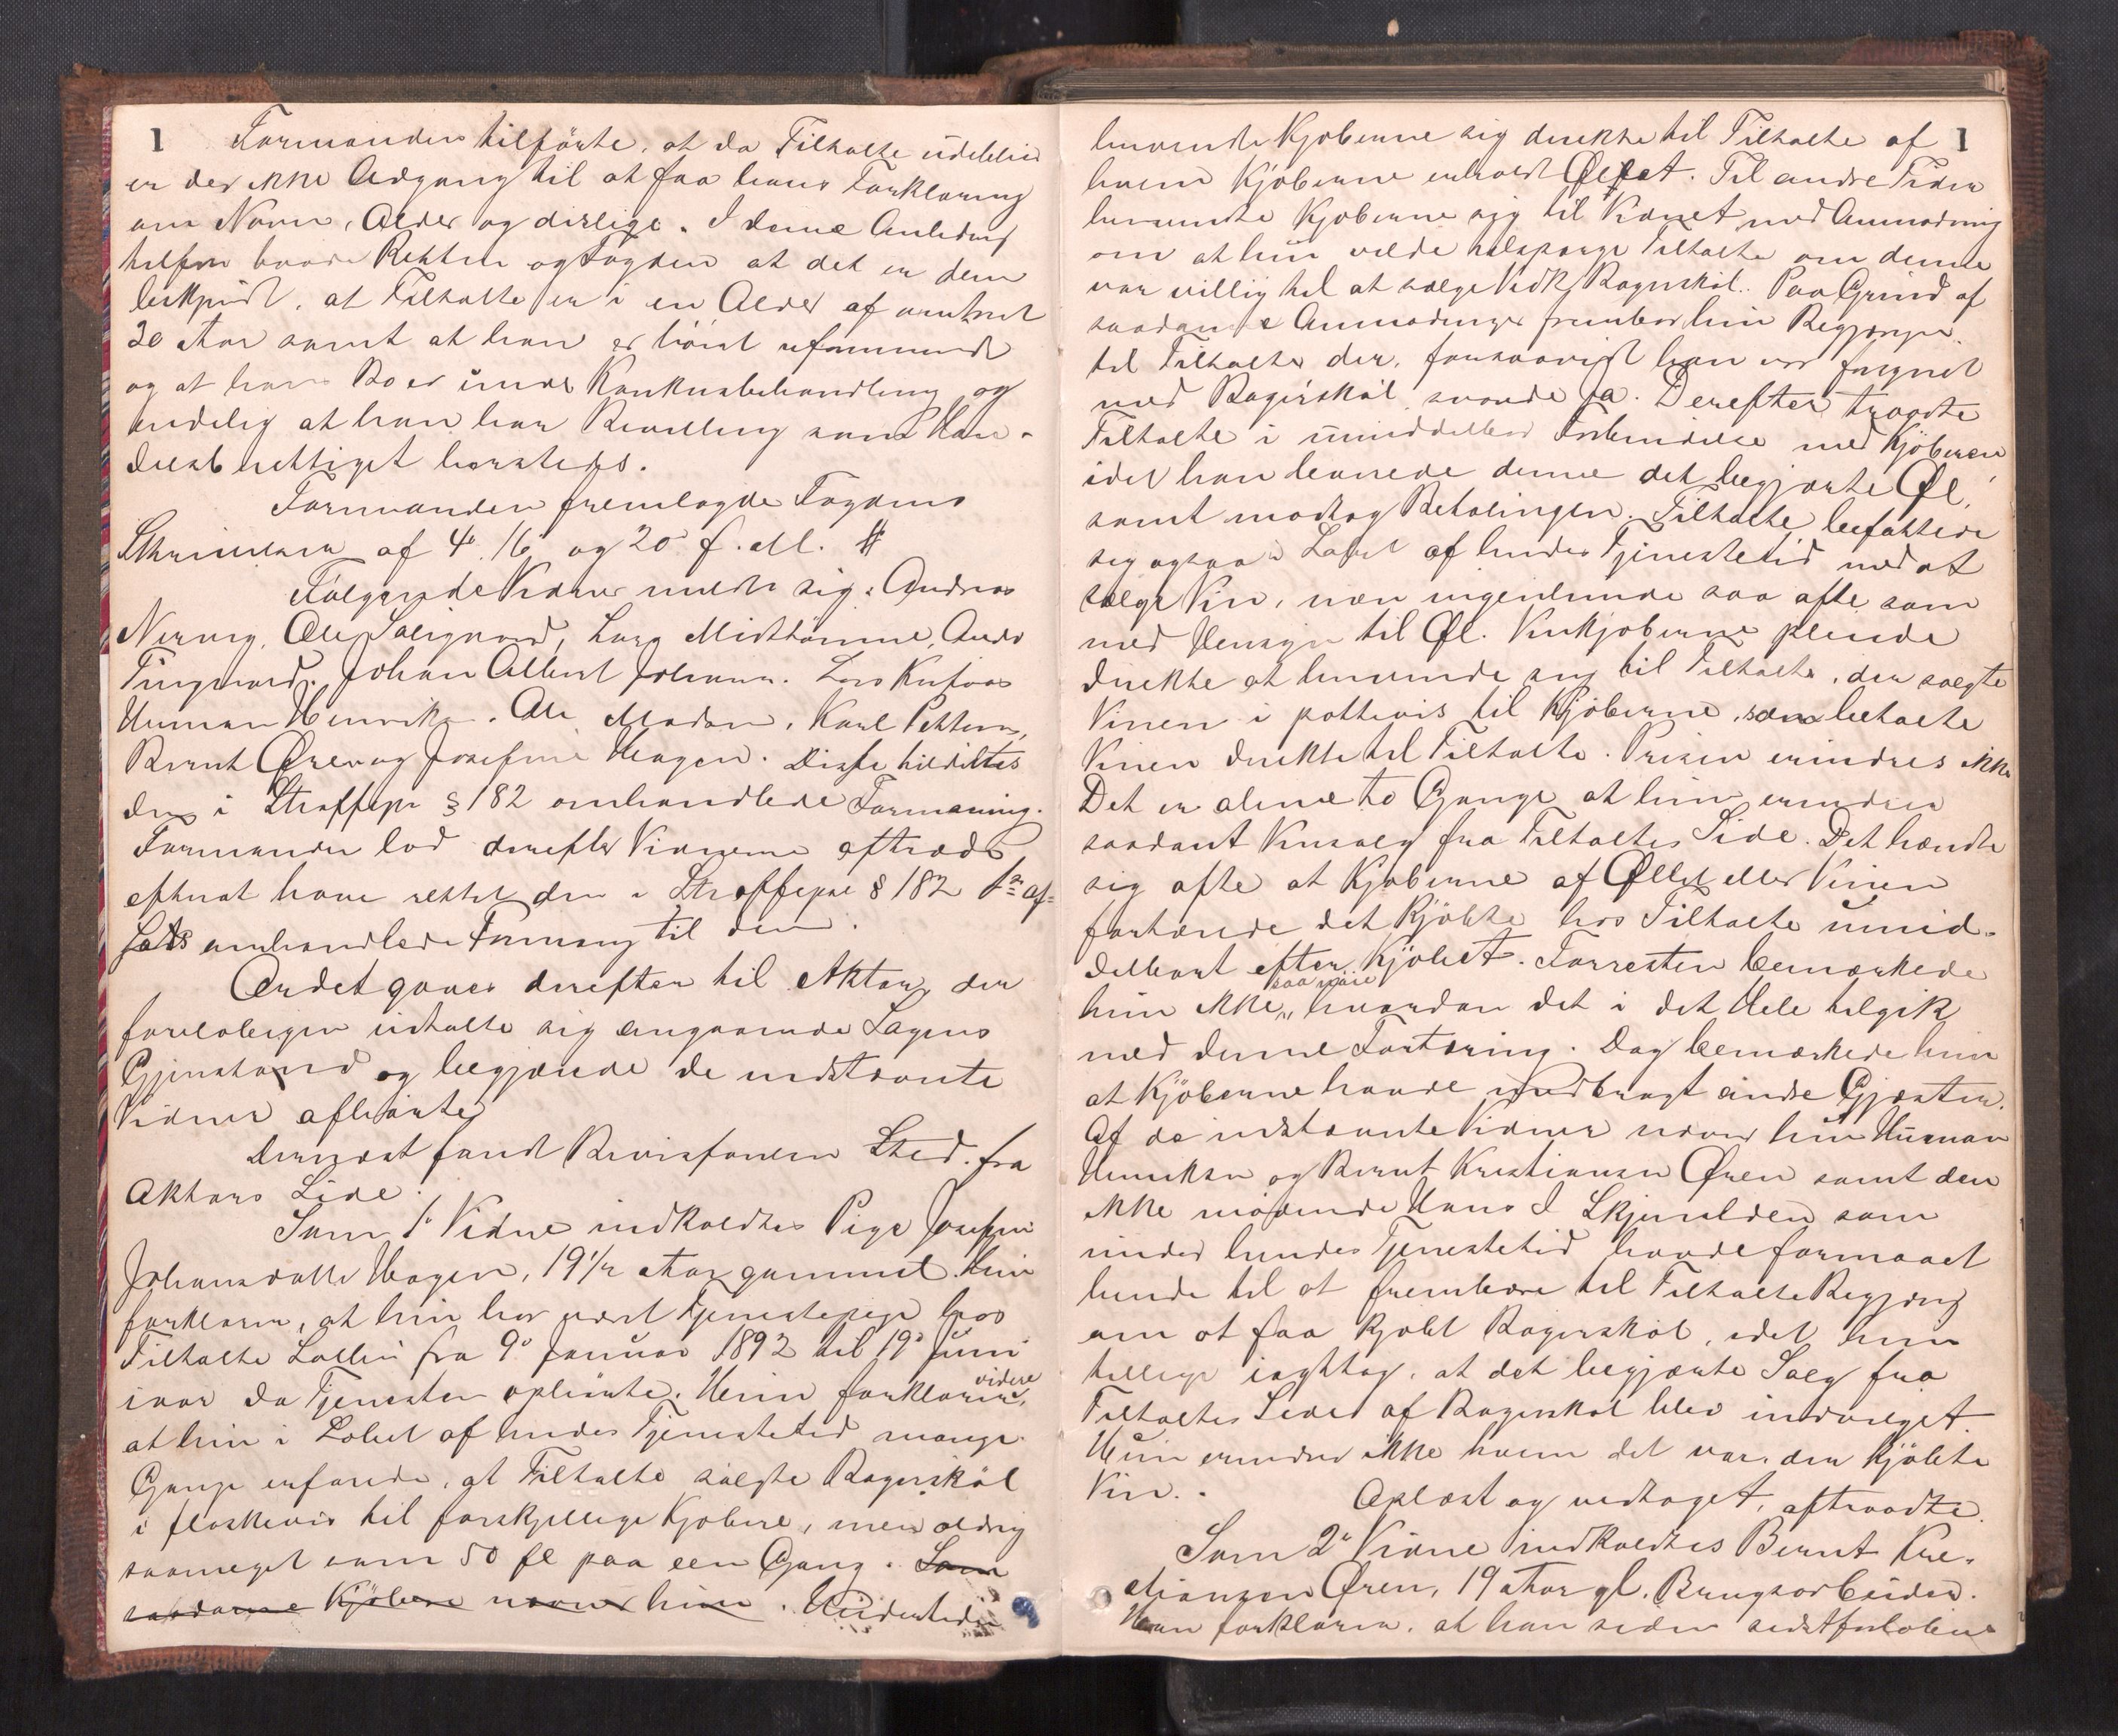 1
Formanden tilførte, at da Tiltalte udeblev
er der ikke Adgang til at faa hans Forklaring
om Navn, Alder og dislige. I denne Anledning
tilføier baade Retten og Fogden at det er dem
bekjendt, at Tiltalte er i en Alder af omtrent
30 Aar samt at han er høist uformuende
og at hans Bo er under Konkursbehandling og
endelig at han har Bevilling som Han-
delsberettiget hersteds.
Formanden fremlagde Fogdens
Skrivelser af 4de 16 og 20 f. M. #
Følgende Vidner meldte sig: Andreas
Nervig, Ole Solignard, Lars Midttømme, Anders
Tingnard, Johan Albert Johansen. Lars
Herman Henriksen. Ole Madsen, Karl Pettersen,
Bernt Øren og Josefine Hagen. Disse tildeltes
den i Straffepr § 182 omhandlede Formaning.
Formanden lod derefter Vidnerne aftræde
efterat have rettet den i Straffepr § 182 1ste Af-
sats omhandlede Formaning til dem.
Ordet gaves derefter til Aktor, der
foreløbigen udtalte sig angaaende Sagens
Gjenstand og begjærede de indstævnte
Vidner afhørte
Dernæst fandt Bevisførelsen Sted fra
Aktors Side.
Som 1ste Vidne indkaldtes Pige Josefine
Johansdatter Hagen, 19 1/2 Aar gammel. Hun
forklarer, at hun har været Tjenestepige hos
Tiltalte fra 9de Januar 1892 til 19de Juni
ivaar da Tjenesten ophørte. Hun forklarer videre,
at hun i Løbet af hendes Tjenestetid mange
Gange erfarede, at Tiltalte solgte Bagerskøl
i flaskevis til forskjellige Kjøbere, men aldrig
saameget som 50 fl paa een Gang. Som
saadanne Kjøbere nævner hun. Undertiden
1
henvendte Kjøberne sig direkte til Tiltalte af
hvem Kjøberne erholdt Øllet. Til andre Tider
henvendte Kjøberne sig til Vidnet med Anmodning
om at hun vilde tilspørge Tiltalte om denne
var villig til at sælge Vedk. Bagerskøl. Paa Grund af
saadanne Anmodninger frembar hun Begjæringen
til Tiltalte der, forsaavidt han var forsynet
med Bagerskøl svarede ja. Derefter traadte
Tiltalte i umiddelbar Forbindelse med Kjøberen
idet han leverede denne det begjærte Øl,
samt modtog Betalingen. Tiltalte befattede
sig ogsaa i Løbet af hendes Tjenestetid med at
sælge Vin, men ingenlunde saa ofte som
med Hensyn til Øl. Vinkjøberne pleiede
direkte at henvende sig til Tiltalte, der solgte
Vinen i pottevis til Kjøberne, som betalte
Vinen direkte til Tiltalte. Prisen erindres ikke
Det er alene to Gange at hun erindrer
saadant Vinsalg fra Tiltaltes Side. Det hændte
sig ofte at Kjøberne af Øllet eller Vinen
fortærede det Kjøbte hos Tiltalte umid-
delbart efter Kjøbet. Forresten bemærkede
hun ikke saa nøie hvordan det i det Hele tilgik
med denne Fortæring. Dog bemærkede hun
at Kjøberne havde medbragt andre Gjæster.
Af de indstævnte Vidner nævner hun Herman
Henriksen og Bernt Kristiansen Øren samt den
ikke mødende Hans I Skjerelden som
under hendes Tjenestetid havde formaaet
hende til at frembære til Tiltalte Begjæring
om at faa kjøbt Bagerskøl, idet hun
tillige iagttog, at det begjærte Salg fra
Tiltaltes Side af Bagerskøl blev indvilget
Hun erindrer ikke hvem det var, der kjøbte
Vin.
Oplæst og vedtaget, aftraadte.
Som 2det Vidne indkaldtes Bernt Kri-
stiansen Øren, 19 Aar gl. Brugsarbeider.
Han forklarer, at han siden sidstforløbne